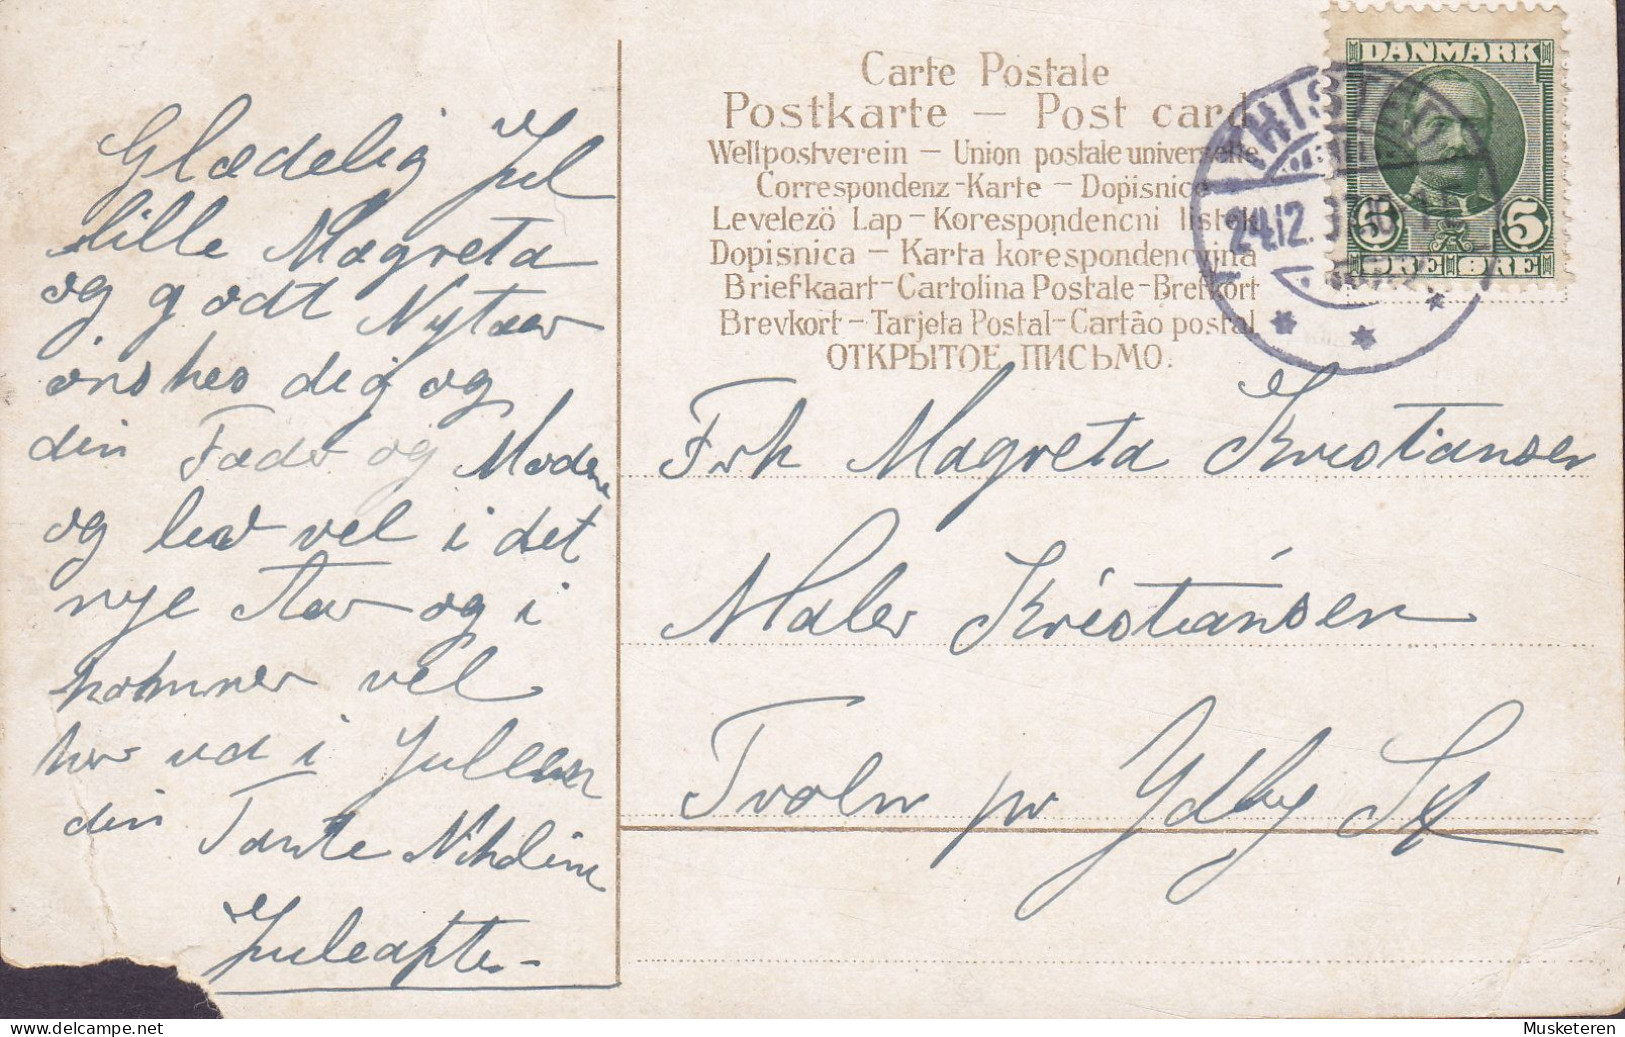 Carte Postale
Postkarte — Post card
Weltpostverein — Union postale universelle
Correspondenz-Karte — Dopisnice
Levelező Lap — Korespondencni listek
Dopisnica — Karta korespondencyjna
Briefkaart — Cartolina Postale — Brefkort
Brevkort — Tarjeta Postal — Cartão postal
ОТКРЫТОЕ ПИСЬМО.
DANMARK
5 5
ØRE ØRE
THISTED
24.12.
Glædelig Jul
lille Magreta
og godt Nytaar
ønskes dig og
din Fader og Moder
og lev vel i det
nye Aar og i
kommer vel
her ud i Julen
din Tante Nikoline
Juleaften
Frk Magreta Kristiansen
Maler Kristiansen
pr Ydby St
Musketeren